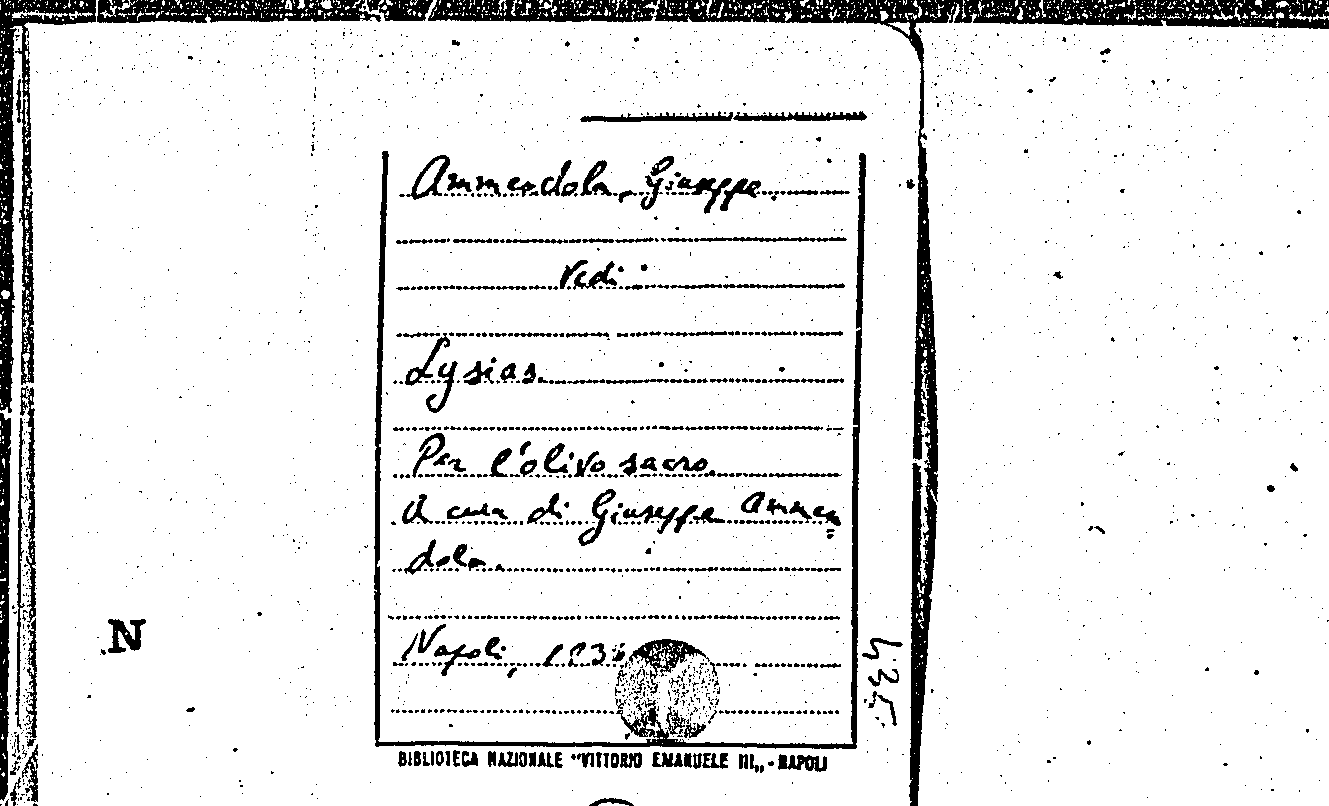 Ammendola, Giuseppe.
Vedi:
Lysias.
Per l'olivo sacro.
A cura di Giuseppe Ammen=
dola.
Napoli,
N
BIBLIOTECA NAZIONALE "VITTORIO EMANUELE III„ - NAPOLI